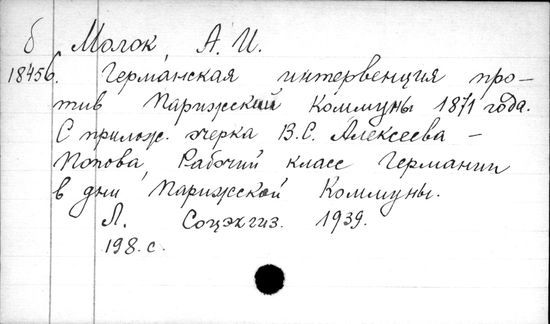 б Молок, А. И.
18456. Германская интервенция про-
тив Парижской Коммуны 1871 года.
С прилож. очерка В.С. Алексеева -
Попова, Рабочий класс Германии
в дни Парижской Коммуны.
Л. Соцэкгиз. 1939.
198 с.